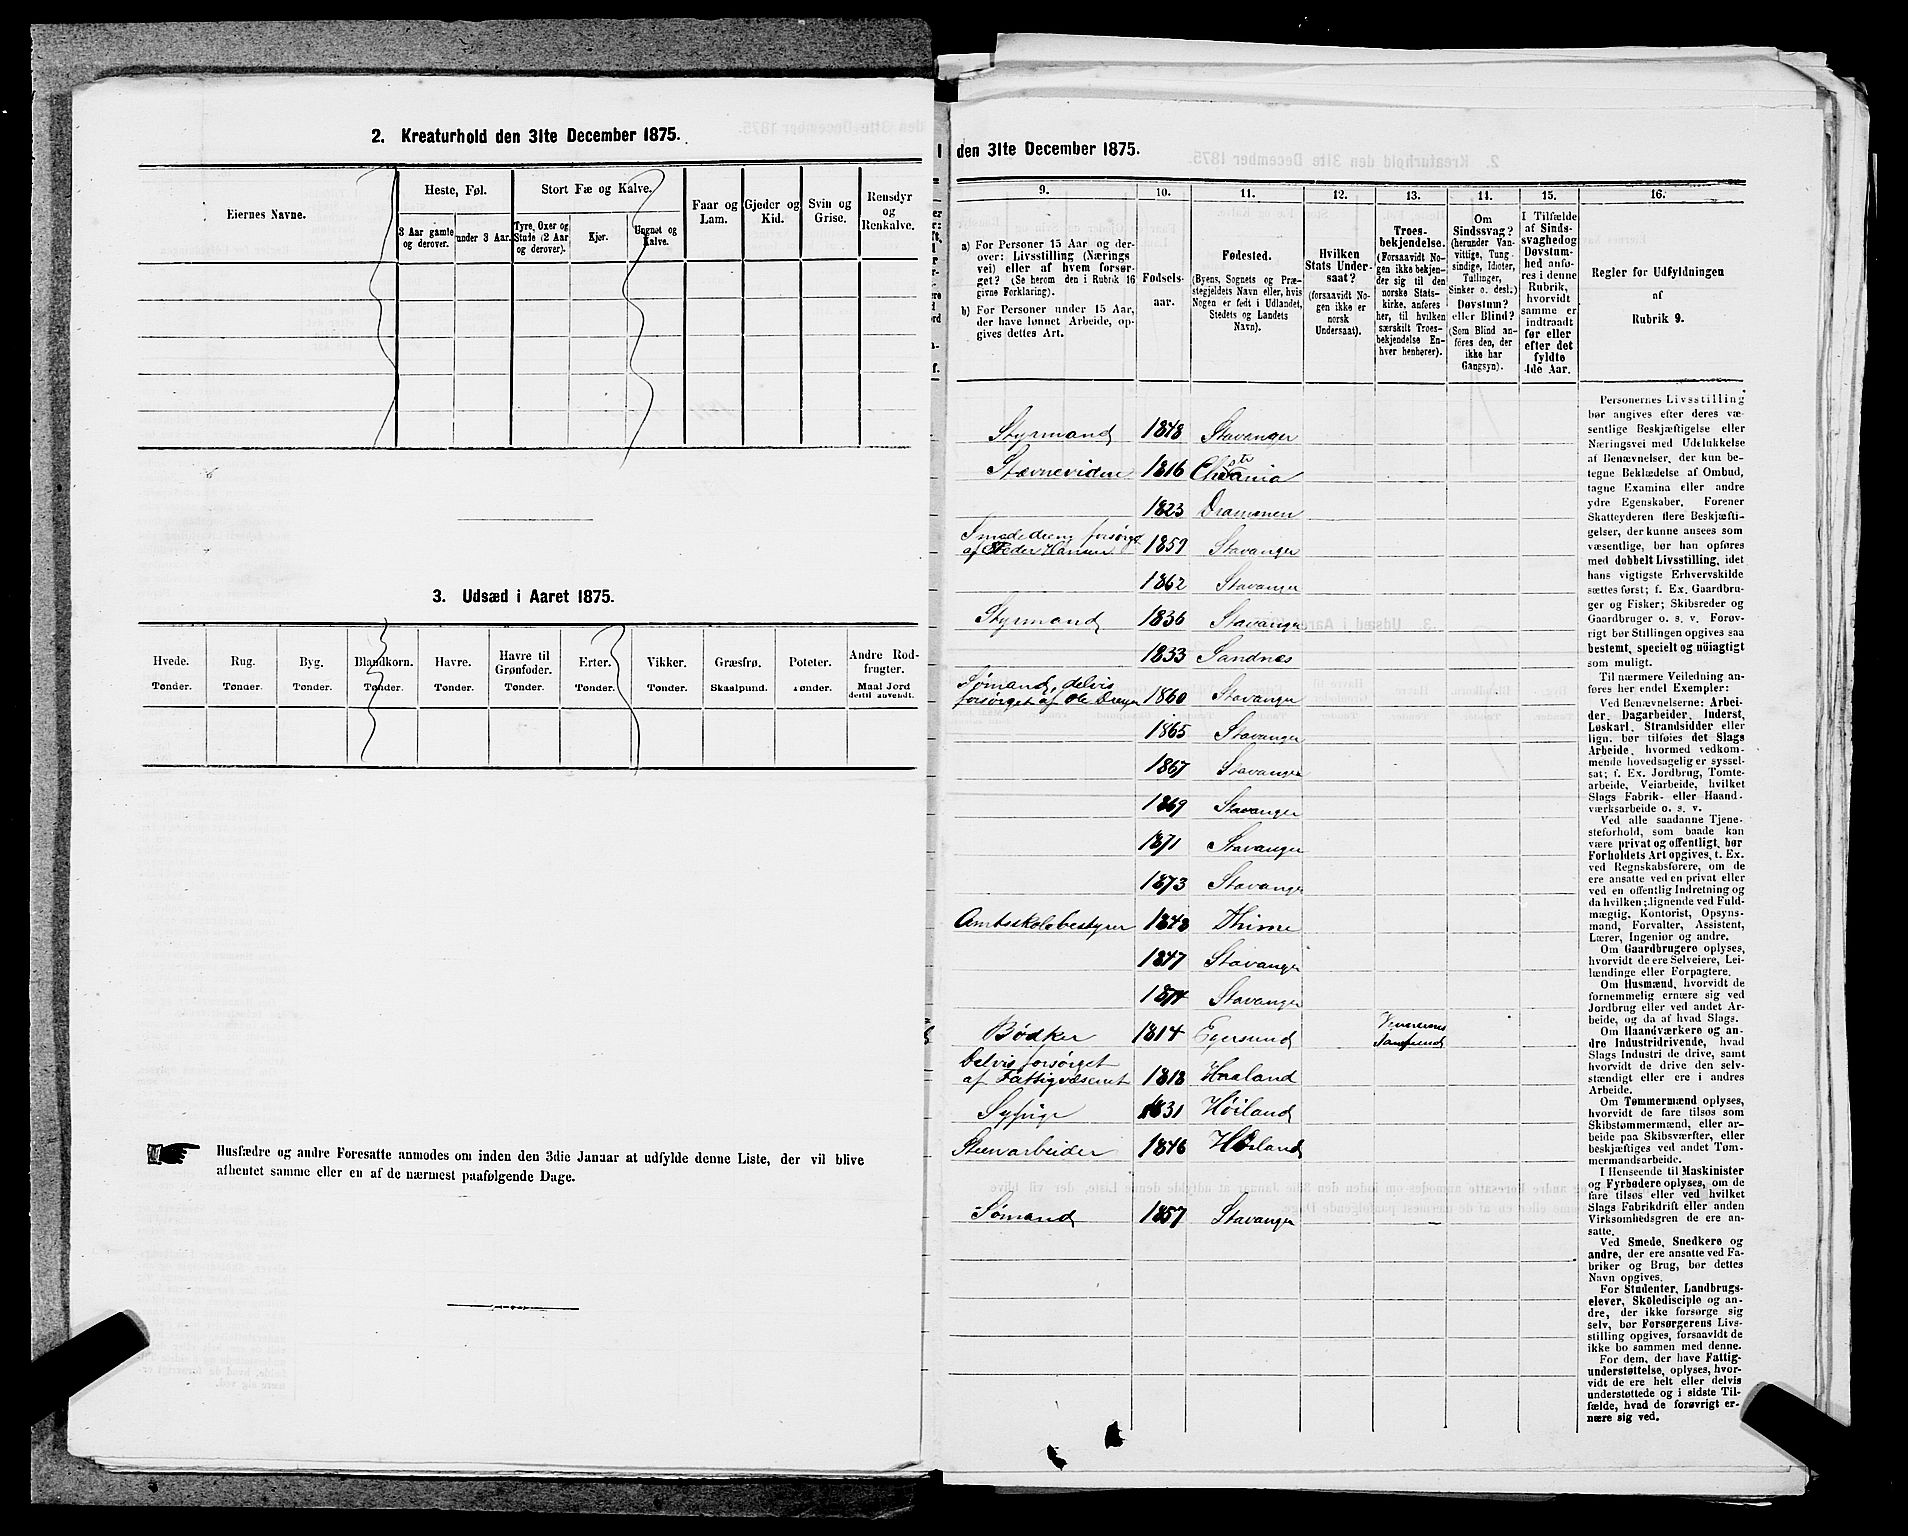 2. Kreaturhold den 31te December 1875.
Eiernes Navne.
Heste, Føl.
3 Aar gamle og derover.
under 3 Aar.
Stort Fæ og Kalve.
Tyre, Oxer og Stude (2 Aar og derover).
Kjør.
Ungnøt og Kalve.
Faar og Lam.
Gjeder og Kid.
Svin og Grise.
Rensdyr og Renkalve.
3. Udsæd i Aaret 1875.
Hvede. Tønder.
Rug. Tønder.
Byg. Tønder.
Blandkorn. Tønder.
Havre. Tønder.
Havre til Grønfoder. Tønder.
Erter. Tønder.
Vikker. Tønder.
Græsfrø. Skaalpund.
Poteter. Tønder.
Andre Rodfrugter. Maal Jord dertil anvendt.
Husfædre og andre Foresatte anmodes om inden den 3die Januar at udfylde denne Liste, der vil blive
afhentet samme eller en af de nærmest paafølgende Dage.
den 31te December 1875.
9.
a) For Personer 15 Aar og derover: Livsstilling (Næringsvei) eller af hvem forsørget? (Se herom den i Rubrik 16 givne Forklaring).
b) For Personer under 15 Aar, der have lønnet Arbeide, opgives dettes Art.
10.
Fødselsaar.
11.
Fødested.
(Byens, Sognets og Præstegjeldets Navn eller, hvis Nogen er født i Udlandet, Stedets og Landets Navn).
12.
Hvilken Stats Undersaat?
(forsaavidt Nogen ikke er norsk Undersaat).
13.
Troesbekjendelse.
(Forsaavidt Nogen ikke bekjender sig til den norske Statskirke, anføres her, til hvilken særskilt Troesbekjendelse Enhver henhører).
14.
Om Sindssvag? (herunder Vanvittige, Tungsindige, Idioter, Tullinger, Sinker o. desl.) Døvstum? eller Blind? (Som Blind anføres den, der ikke har Gangsyn).
15.
I Tilfælde af Sindssvaghed og Døvstumhed anføres i denne Rubrik, hvorvidt samme er indtraadt før eller efter det fyldte 4de Aar.
16.
Regler for Udfyldningen
af
Rubrik 9.
Styrmand 1848 Stavanger
Stævnevidne 1816 Chrania
1823 Drammen
Smededreng forsørget
af Peder Hansen 1859 Stavanger
1862 Stavanger
Styrmand 1836 Stavanger
1833 Sandnes
Sømand, delvis
forsørget af Ole Dreyer 1860 Stavanger
1865 Stavanger
1867 Stavanger
1869 Stavanger
1871 Stavanger
1873 Stavanger
Amtsskolebestyrer 1848 Thime
1847 Stavanger
1874 Stavanger
Bødker 1814 Egersund
Delvis forsørget
af Fattigvæsenet 1818 Haaland
Sypige 1831 Høiland
Steenarbeider 1846 Høiland
Sømand 1857 Stavanger
Personernes Livsstilling
bør angives efter deres væ-
sentlige Beskjæftigelse eller
Næringsvei med Udelukkelse
af Benævnelser, der kun be-
tegne Beklædelse af Ombud,
tagne Examina eller andre
ydre Egenskaber. Forener
Skatteyderen flere Beskjæfti-
gelser, der kunne ansees som
væsentlige, bør han opføres
med dobbelt Livsstilling, idet
hans vigtigste Erhvervskilde
sættes først; f. Ex. Gaardbru-
ger og Fisker; Skibsreder og
Gaardbruger o. s. v. Forøv-
rigt bør Stillingen opgives saa
bestemt, specielt og nøiagtigt
som muligt.
Til nærmere Veiledning an-
føres her endel Exempler:
Ved Benævnelserne: Arbei-
der, Dagarbeider, Inderst,
Løskarl, Strandsidder eller
lign. bør tilføies det Slags
Arbeide, hvormed vedkom-
mende hovedsagelig er syssel-
sat; f. Ex. Jordbrug, Tomte-
arbeide, Veiarbeide, hvilket
Slags Fabrik- eller Haand-
værksarbeide o. s. v.
Ved alle saadanne Tjene-
steforhold, som baade kan
være privat og offentligt, bør
Forholdets Art opgives, f. Ex.
ved Regnskabsførere, om de
ere ansatte ved en privat eller
ved en offentlig Indretning og
da hvilken; lignende ved Fuld-
mægtig, Kontorist, Opsyns-
mand, Forvalter, Assistent,
Lærer, Ingeniør og andre.
Om Gaardbrugere oplyses,
hvorvidt de ere Selveiere, Lei-
lændinge eller Forpagtere.
Om Husmænd, hvorvidt de
fornemmelig ernære sig ved
Jordbrug eller ved andet Ar-
beide, og da af hvad Slags.
Om Haandværkere og an-
dre Industridrivende, hvad
Slags Industri de drive, samt
hvorvidt de drive den selv-
stændigt eller ere i andres
Arbeide.
Om Tømmermænd oplyses,
hvorvidt de fare tilsøs som
Skibstømmermænd, eller ar-
beide paa Skibsværfter, eller
beskjæftiges ved andet Tøm-
mermandsarbeide.
I Henseende til Maskinister
og Fyrbødere oplyses, om de
fare tilsøs eller ved hvilket
Slags Fabrikdrift eller anden
Virksomhedsgren de ere an-
satte.
Ved Smede, Snedkere og
andre, der ere ansatte ved Fa-
briker og Brug, bør dettes
Navn opgives.
For Studenter, Landbrugs-
elever, Skoledisciple og an-
dre, der ikke forsørge sig
selv, bør Forsørgerens Livs-
stilling opgives, forsaavidt de
ikke bo sammen med denne.
For dem, der have Fattig-
understøttelse, oplyses, hvor-
vidt de ere helt eller delvis
understøttede og i sidste Til-
fælde, hvad de forøvrigt er-
nære sig ved.